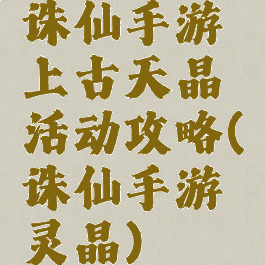 诛仙手游
上古天晶
活动攻略(
诛仙手游
灵晶)